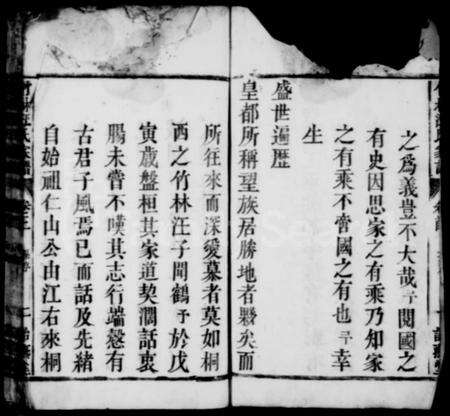 之爲義豈不大哉予閱國之
有史因思家之有乘乃知家
之有乘不啻國之有也予幸
生
盛世遍歷
皇都所稱望族居勝地者夥矣而
所往來而深愛慕者莫如桐
西之竹林汪子聞鶴予於戊
寅歲盤桓其家道契濶話衷
腸未嘗不嘆其志行端慤有
古君子風焉已而話及先緒
自始祖仁山公由江右來桐